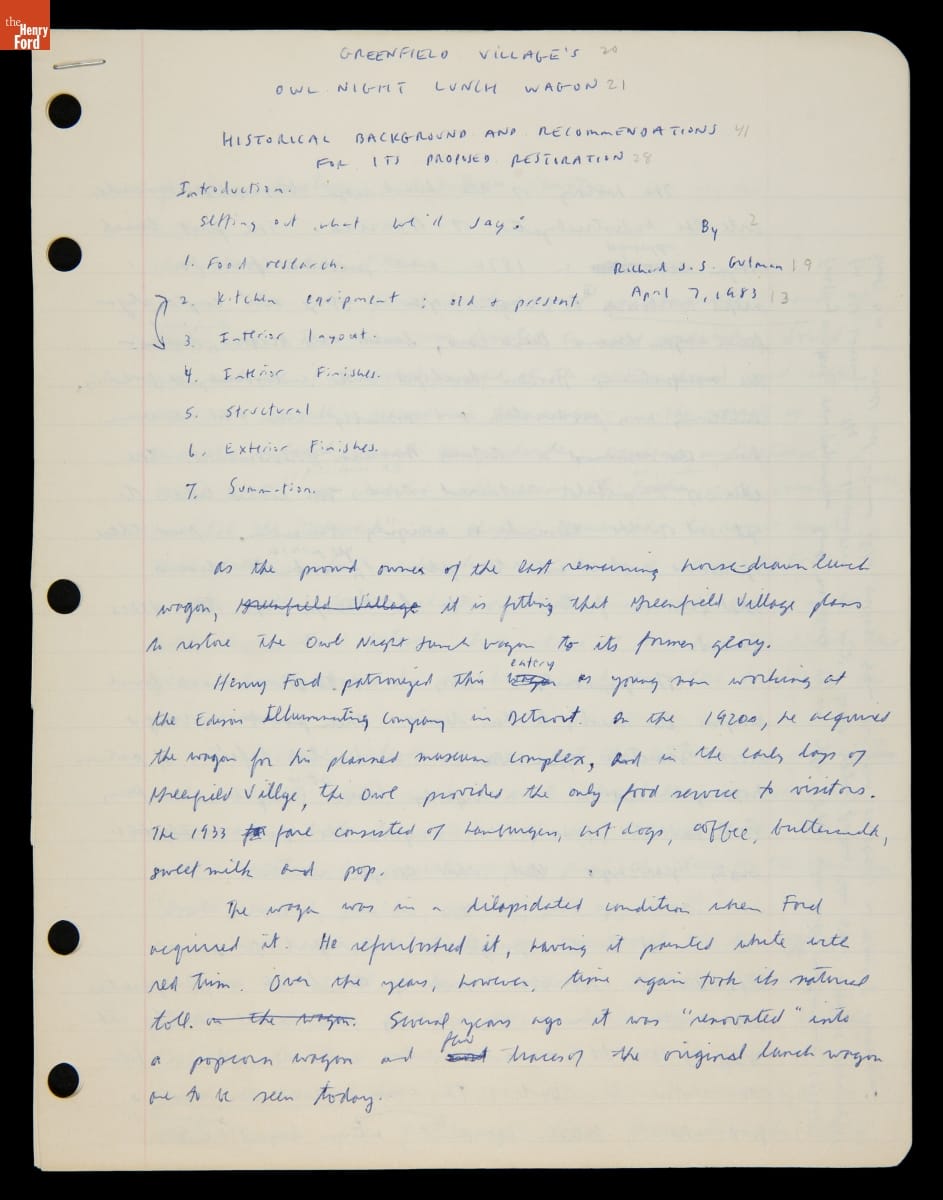 the
Henry
Ford
GREENFIELD VILLAGE'S 20
OWL NIGHT LUNCH WAGON 21
HISTORICAL BACKGROUND AND RECOMMENDATIONS 41
FOR ITS PROPOSED RESTORATION 28
Introduction.
Setting out what we'll say: By 2
1. Food research. Richard J.S. Gutman 19
2. Kitchen equipment: old & present. April 7, 1983 13
3. Interior layout.
4. Interior Finishes.
5. Structural
6. Exterior Finishes.
7. Summation.
As the proud owner of the last remaining horse-drawn lunch
wagon, Greenfield Village it is fitting that Greenfield Village plans
to restore the Owl Night Lunch wagon to its former glory.
eatery
Henry Ford patronized this wagon as young man working at
the Edison Illuminating Company in Detroit. In the 1920s, he acquired
the wagon for his planned museum complex, and in the early days of
Greenfield Village, the Owl provided the only food service to visitors.
The 1933 fare consisted of hamburgers, hot dogs, coffee, buttermilk,
sweet milk and pop.
The wagon was in a dilapidated condition when Ford
acquired it. He refurbished it, having it painted white with
red trim. Over the years, however, time again took its natural
toll. on the wagon. Several years ago it was "renovated" into
few
a popcorn wagon and traces of the original lunch wagon
are to be seen today.